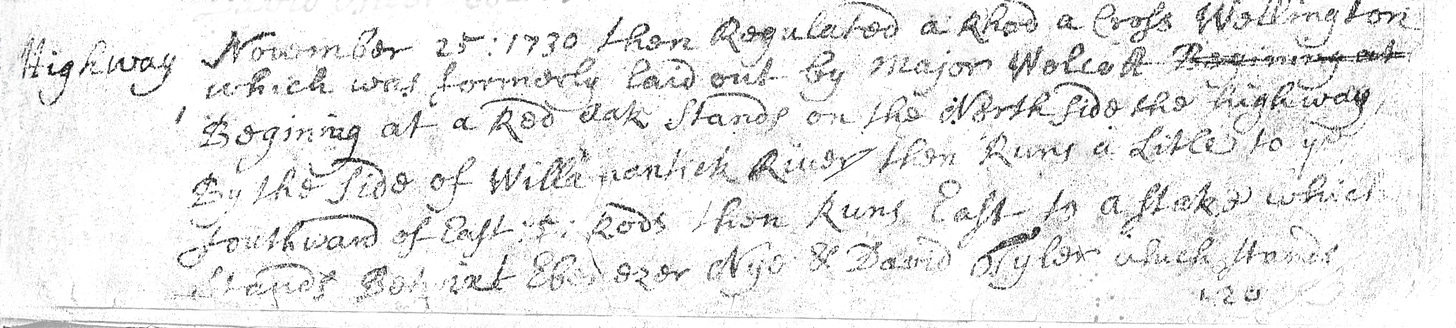 Highway November 25 : 1730 then Regulated a Rhod a Cross Wellington
which was formerly laid out by Major Wolcott Begining at
Begining at a Red oak Stands on the North Side the highway,
By the Side of Willamantick River then Runs a Litle to ye
Southward of East : 5 : Rods then Runs East to a stake which
Stands Betwixt Ebenezer Nye & David Tyler which stands
120